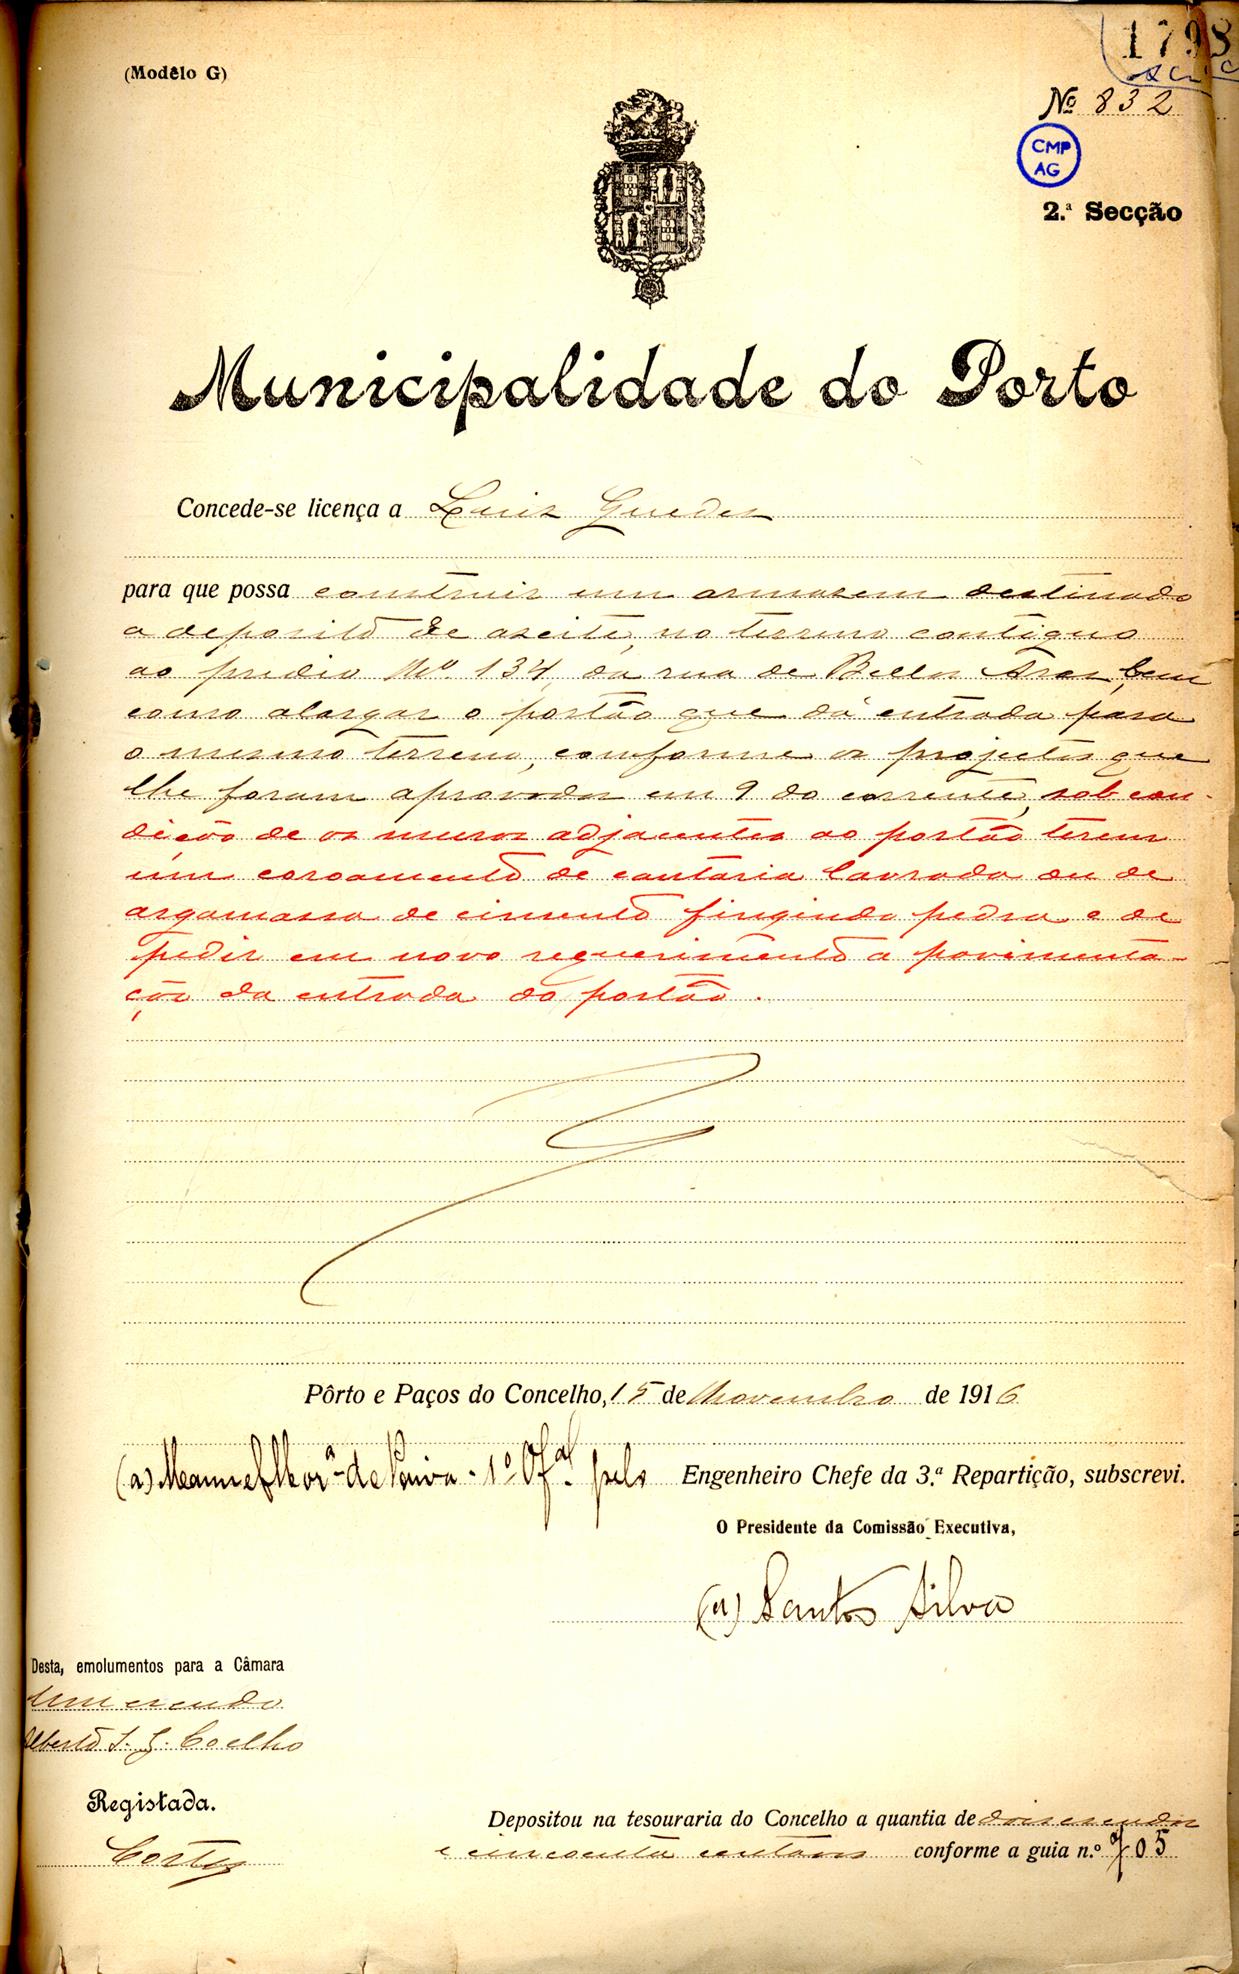 (Modêlo G)
1798
Nº 832
CMP
AG
2.ª Secção
Municipalidade do Porto
Concede-se licença a Luiz Guedes
para que possa construir um armazem destinado
a deposito de azeite, no terreno contiguo
ao predio Nº 134, da rua de Bellos Ares, bem
como alargar o portão que dá entrada para
o mesmo terreno, conforme os projectos que
lhe foram aprovados em 9 do corrente, sob con-
dição de os muros adjacentes ao portão terem
um coroamento de cantaria lavrada ou de
argamassa de cimento fingindo pedra e de
pedir em novo requerimento a pavimenta-
ção da entrada do portão.
Pôrto e Paços do Concelho, 15 de Novembro de 1916
(a) de Paiva - 1º Of.al pelo Engenheiro Chefe da 3.ª Repartição, subscrevi.
O Presidente da Comissão Executiva,
(a) Santos Silva
Desta, emolumentos para a Câmara
Um escudo
Alberto S. G. Coelho
Registada.
Depositou na tesouraria do Concelho a quantia de dois escudos
e cincoenta centavos conforme a guia n.º 705